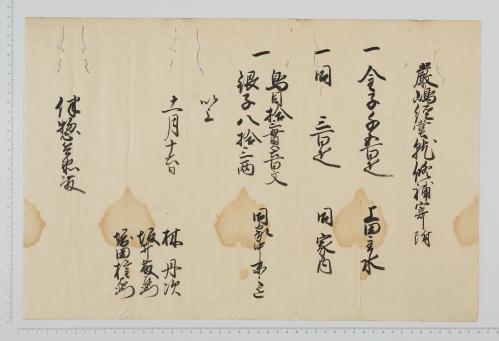 嚴嶋經堂就修補寄附
一金子千五百疋 上田主水
一同 三百疋 同家内
鳥目拾三貫六百文
一銀子八拾三両 同家中
以上
十一月十六日
林 丹次
坂井
堀田
伴惣左衛門殿